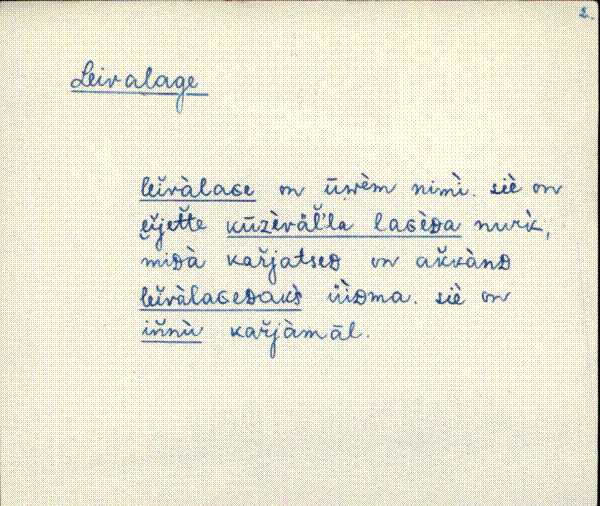 2.
Leivalage
leĭvàlaɢe on ūwèm nimì. siè on
eĭjette kūzèvăl̆'la laɢèᴅa nurk̀,
miᴅà kar̆jatseᴅ on ak̆kànᴅ
leĭvàlaɢeᴅaks̀ üìᴅma. siè on
in̆nù kar̆jàmāl.